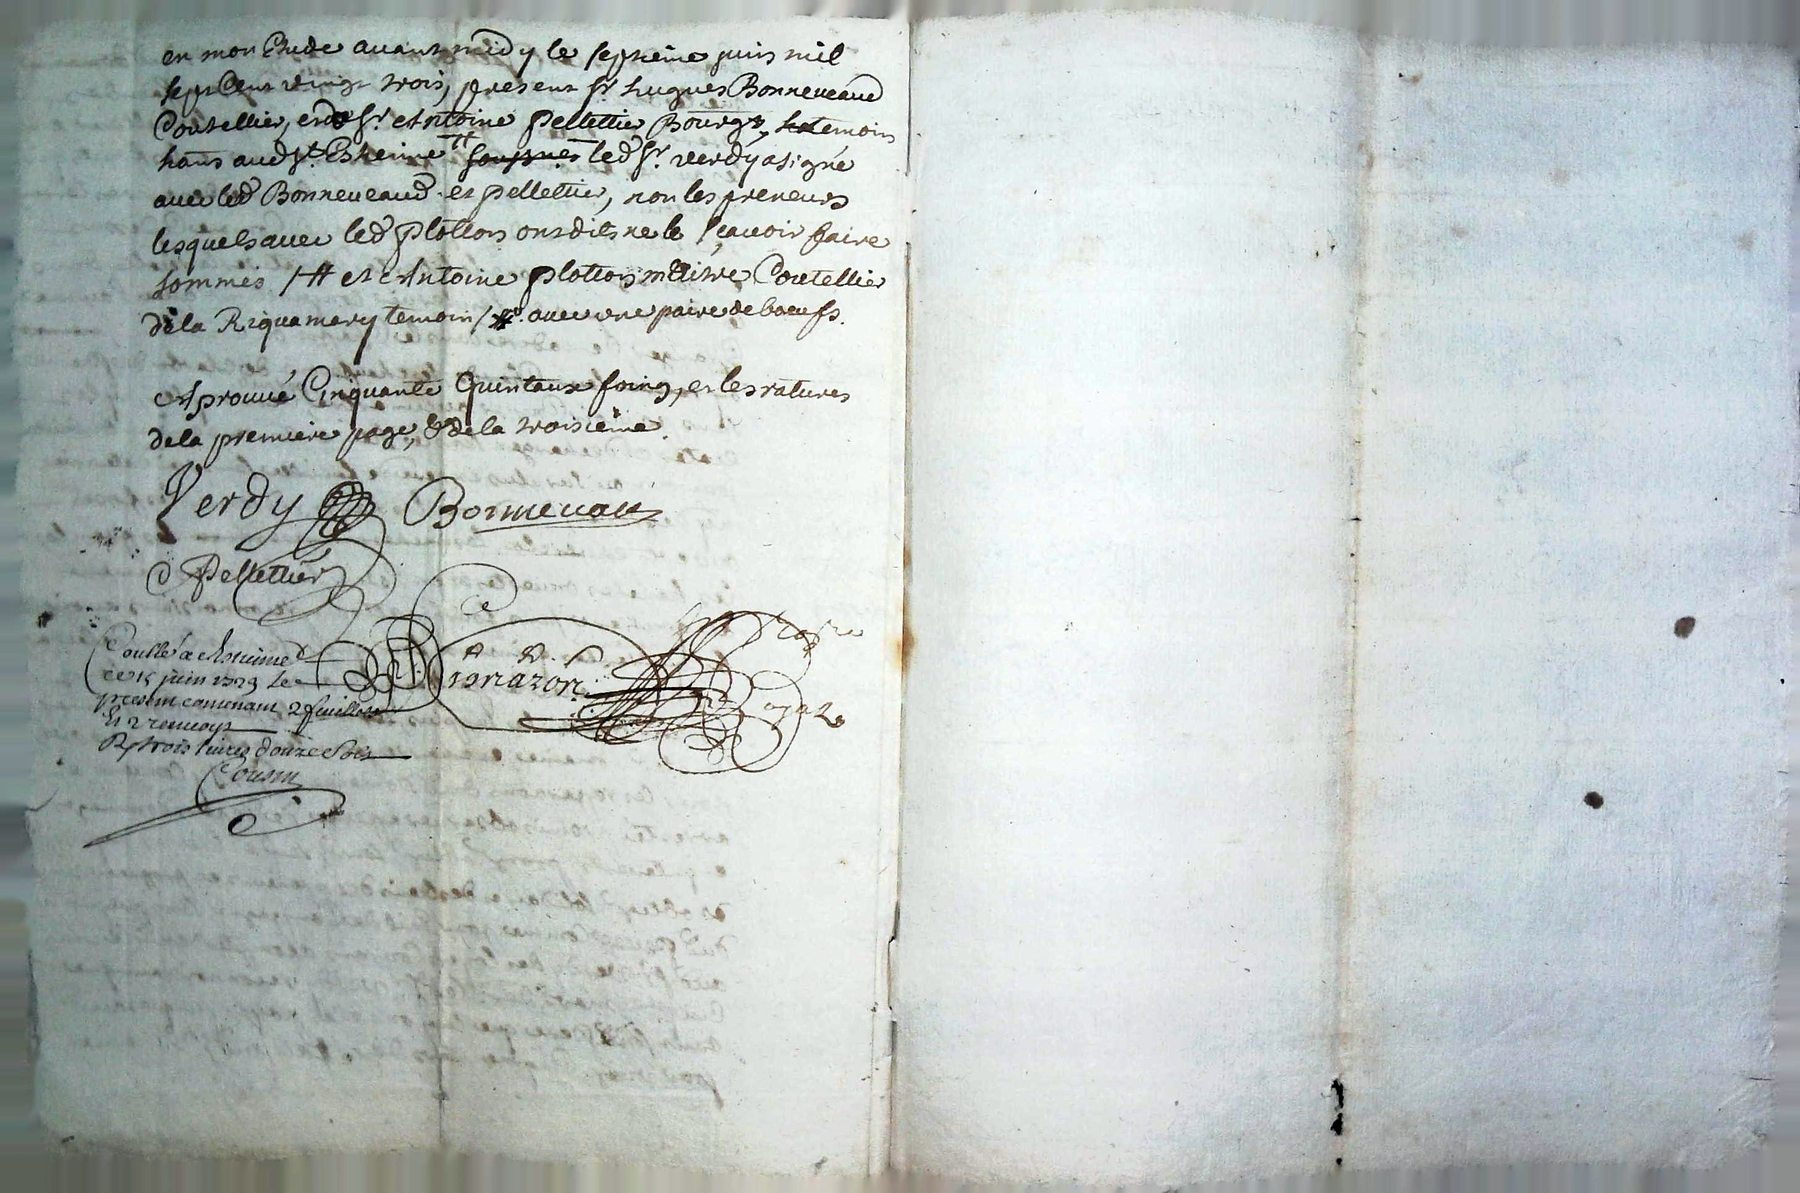 en mon Etude avant midy le septième juin mil
sept Cent vingt trois, present Sr hugues Bonneveaud
Coutellier, et Sr Antoine Pellettier Bourgs, temoins
hans aud St Estienne # soussnés led Sr verdy a signé
avec led Bonneveaud et pellettier, non les preneurs
lesquels avec led plottons ont dits ne le sçavoir faire
sommés /# et Antoine plotton mtive Coutellier
de la Riquamary temoin / avec une paire de boeufs.
Aprouvé Cinquante quintaux foing, et les ratures
de la premiere page, & de la troisieme.
Verdy Bonneveau
A Pellettier
Coullé a St Estienne
ce 15 juin 1723 le
present contenant 2 feuillets
Et 2 renvoys
R trois livres douze sols
Cousin